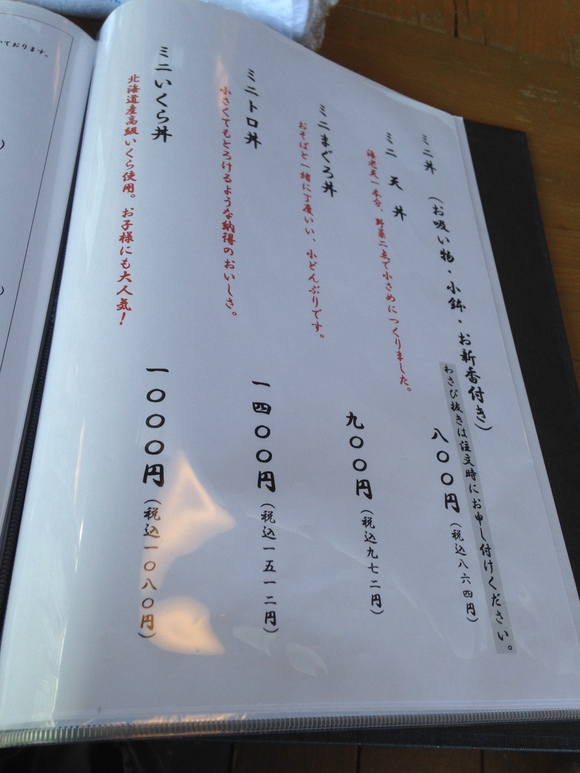 ミニ丼 (お吸い物・小鉢・お新香付き)
わさび抜きは注文時にお申し付けください。
ミニ天丼 八〇〇円(税込八六四円)
海老天一本、野菜二点で小さめにつくりました。
ミニまぐろ丼 九〇〇円(税込九七二円)
おそばと一緒に丁度いい、小どんぶりです。
ミニトロ丼 一四〇〇円(税込一五一二円)
小さくてもとろけるような納得のおいしさ。
ミニいくら丼 一〇〇〇円(税込一〇八〇円)
北海道産高級いくら使用。お子様にも大人気！
ております。